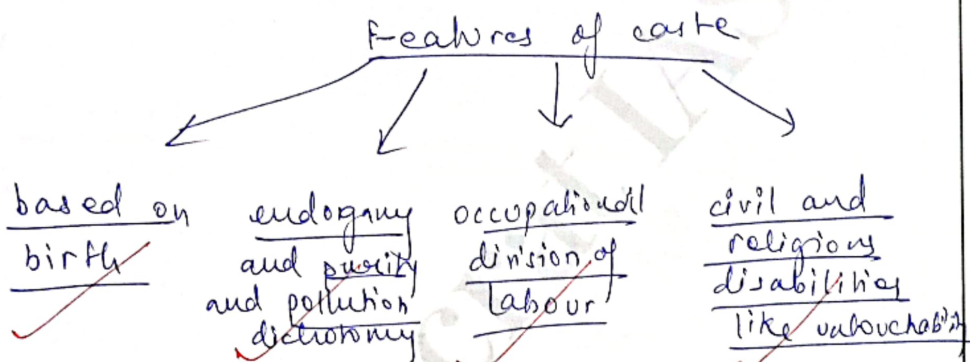 Features of caste
based on
birth
endogamy
and purity
and pollution
dichotomy
occupational
division of
labour
civil and
religious
disabilities
like untouchability